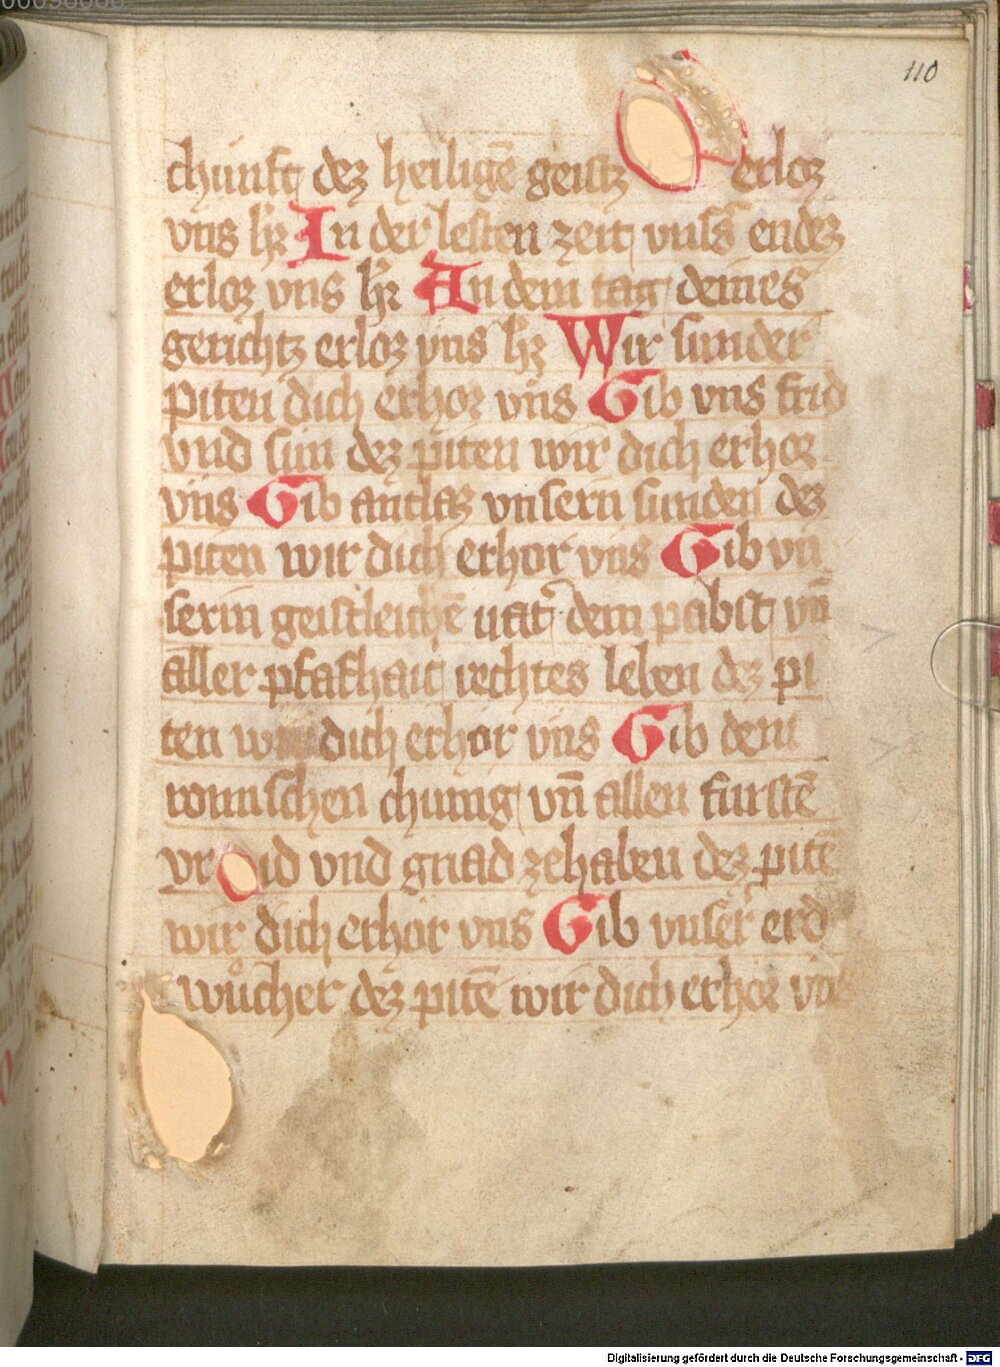 110
chunft dez heiligē geistz erloz
vns hr̄ In der lesten zeit vnss̄ endez
erloz vns hr̄ An dem tag deines
gerichtz erloz vns hr̄ Wir sunder
piten dich erhoz vns Gib vns frid
vnd sun dez piten wir dich erhoz
vns Gib antlaz vnsern sunden dez
piten wir dich erhor vns Gib vn
serm geistleichē vat̄ dem pabst vn̄
aller pfafhait rechtes leben dez pi
ten wir dich erhor vns Gib dem
romischen chunig vn̄ allen furstē
vrid vnd gnad zehaben dez pitē
wir dich erhor vns Gib vnser̄ erd
wůcher dez pitē wir dich erhoz vns
Digitalisierung gefördert durch die Deutsche Forschungsgemeinschaft - DFG